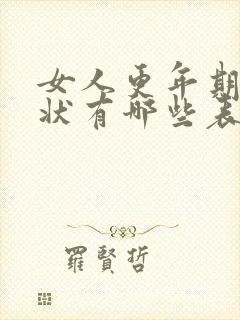 女人更年期
状有哪些表
羅賢哲